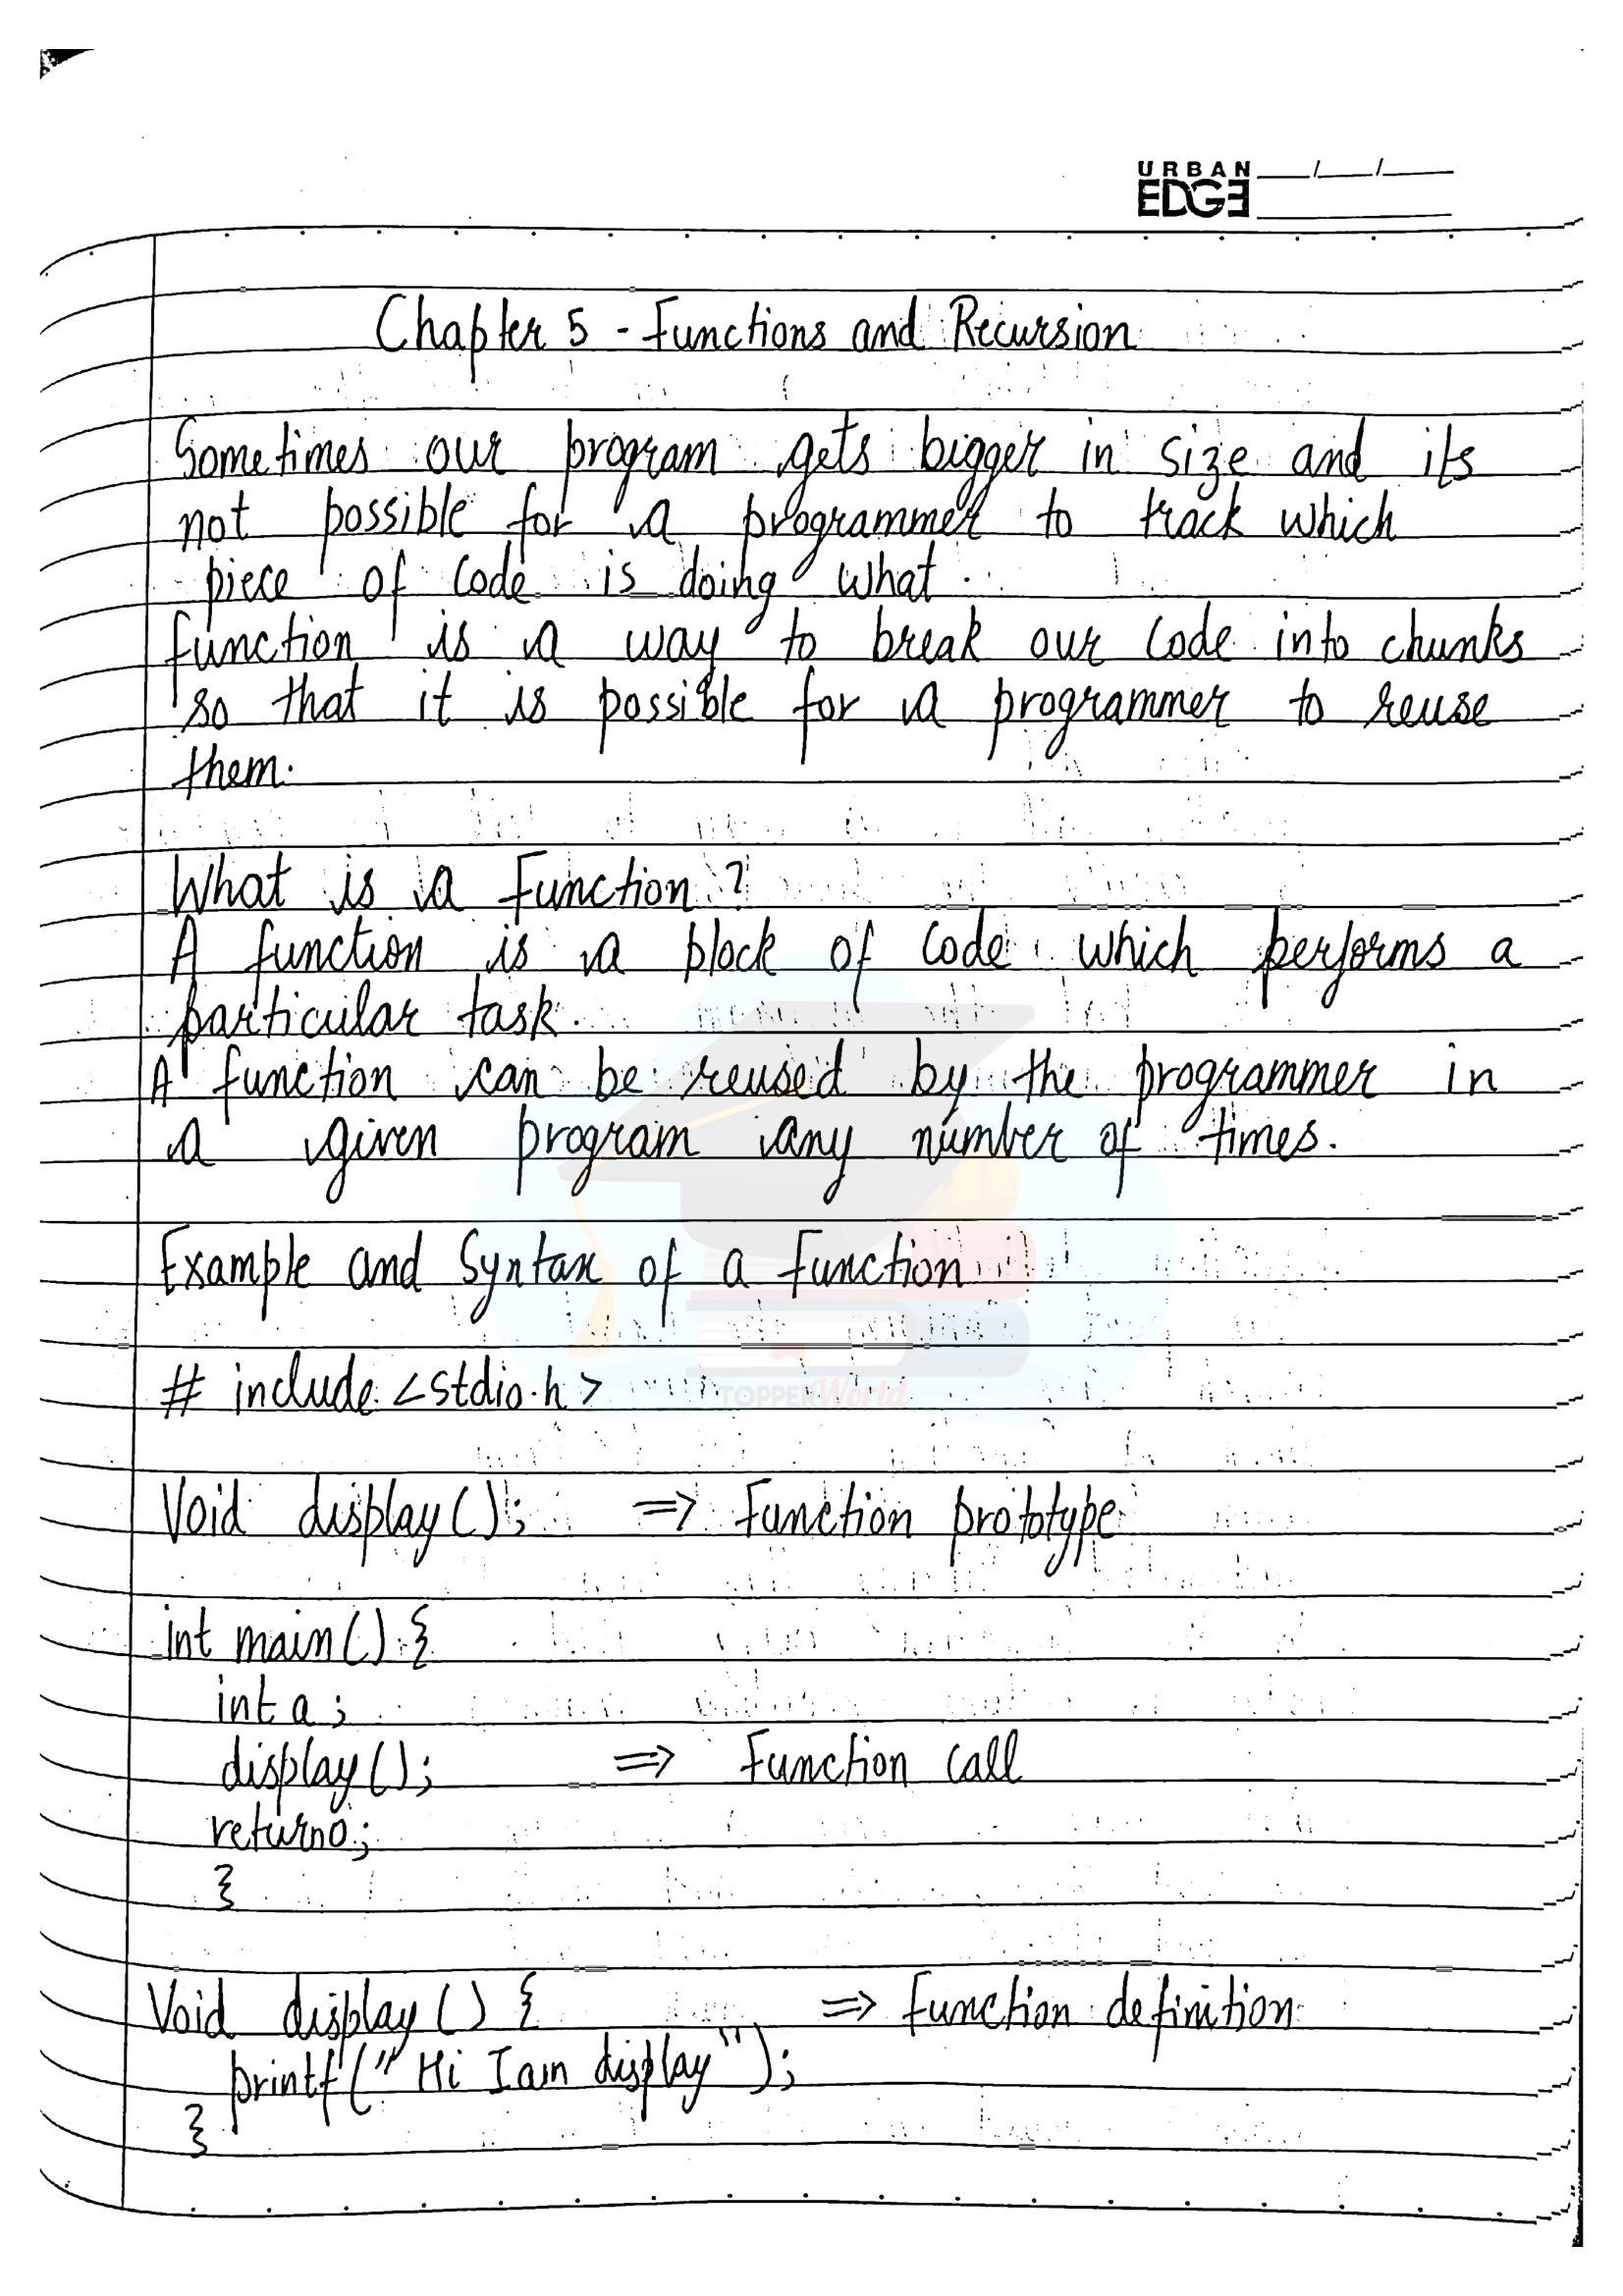 URBAN
EDGE
Chapter 5 - Functions and Recursion
Sometimes our program gets bigger in size and its
not possible for a programmer to track which
piece of code is doing what.
function is a way to break our code into chunks
so that it is possible for a programmer to reuse
them.
What is a Function?
A function is a block of code which performs a
particular task.
A function can be reused by the programmer in
a given program any number of times.
Example and Syntax of a Function
# include <stdio.h>
TOPPERWorld
Void display(); => Function prototype
int main() {
int a;
display(); => Function call
return0;
}
Void display() { => Function definition
printf("Hi I am display");
}